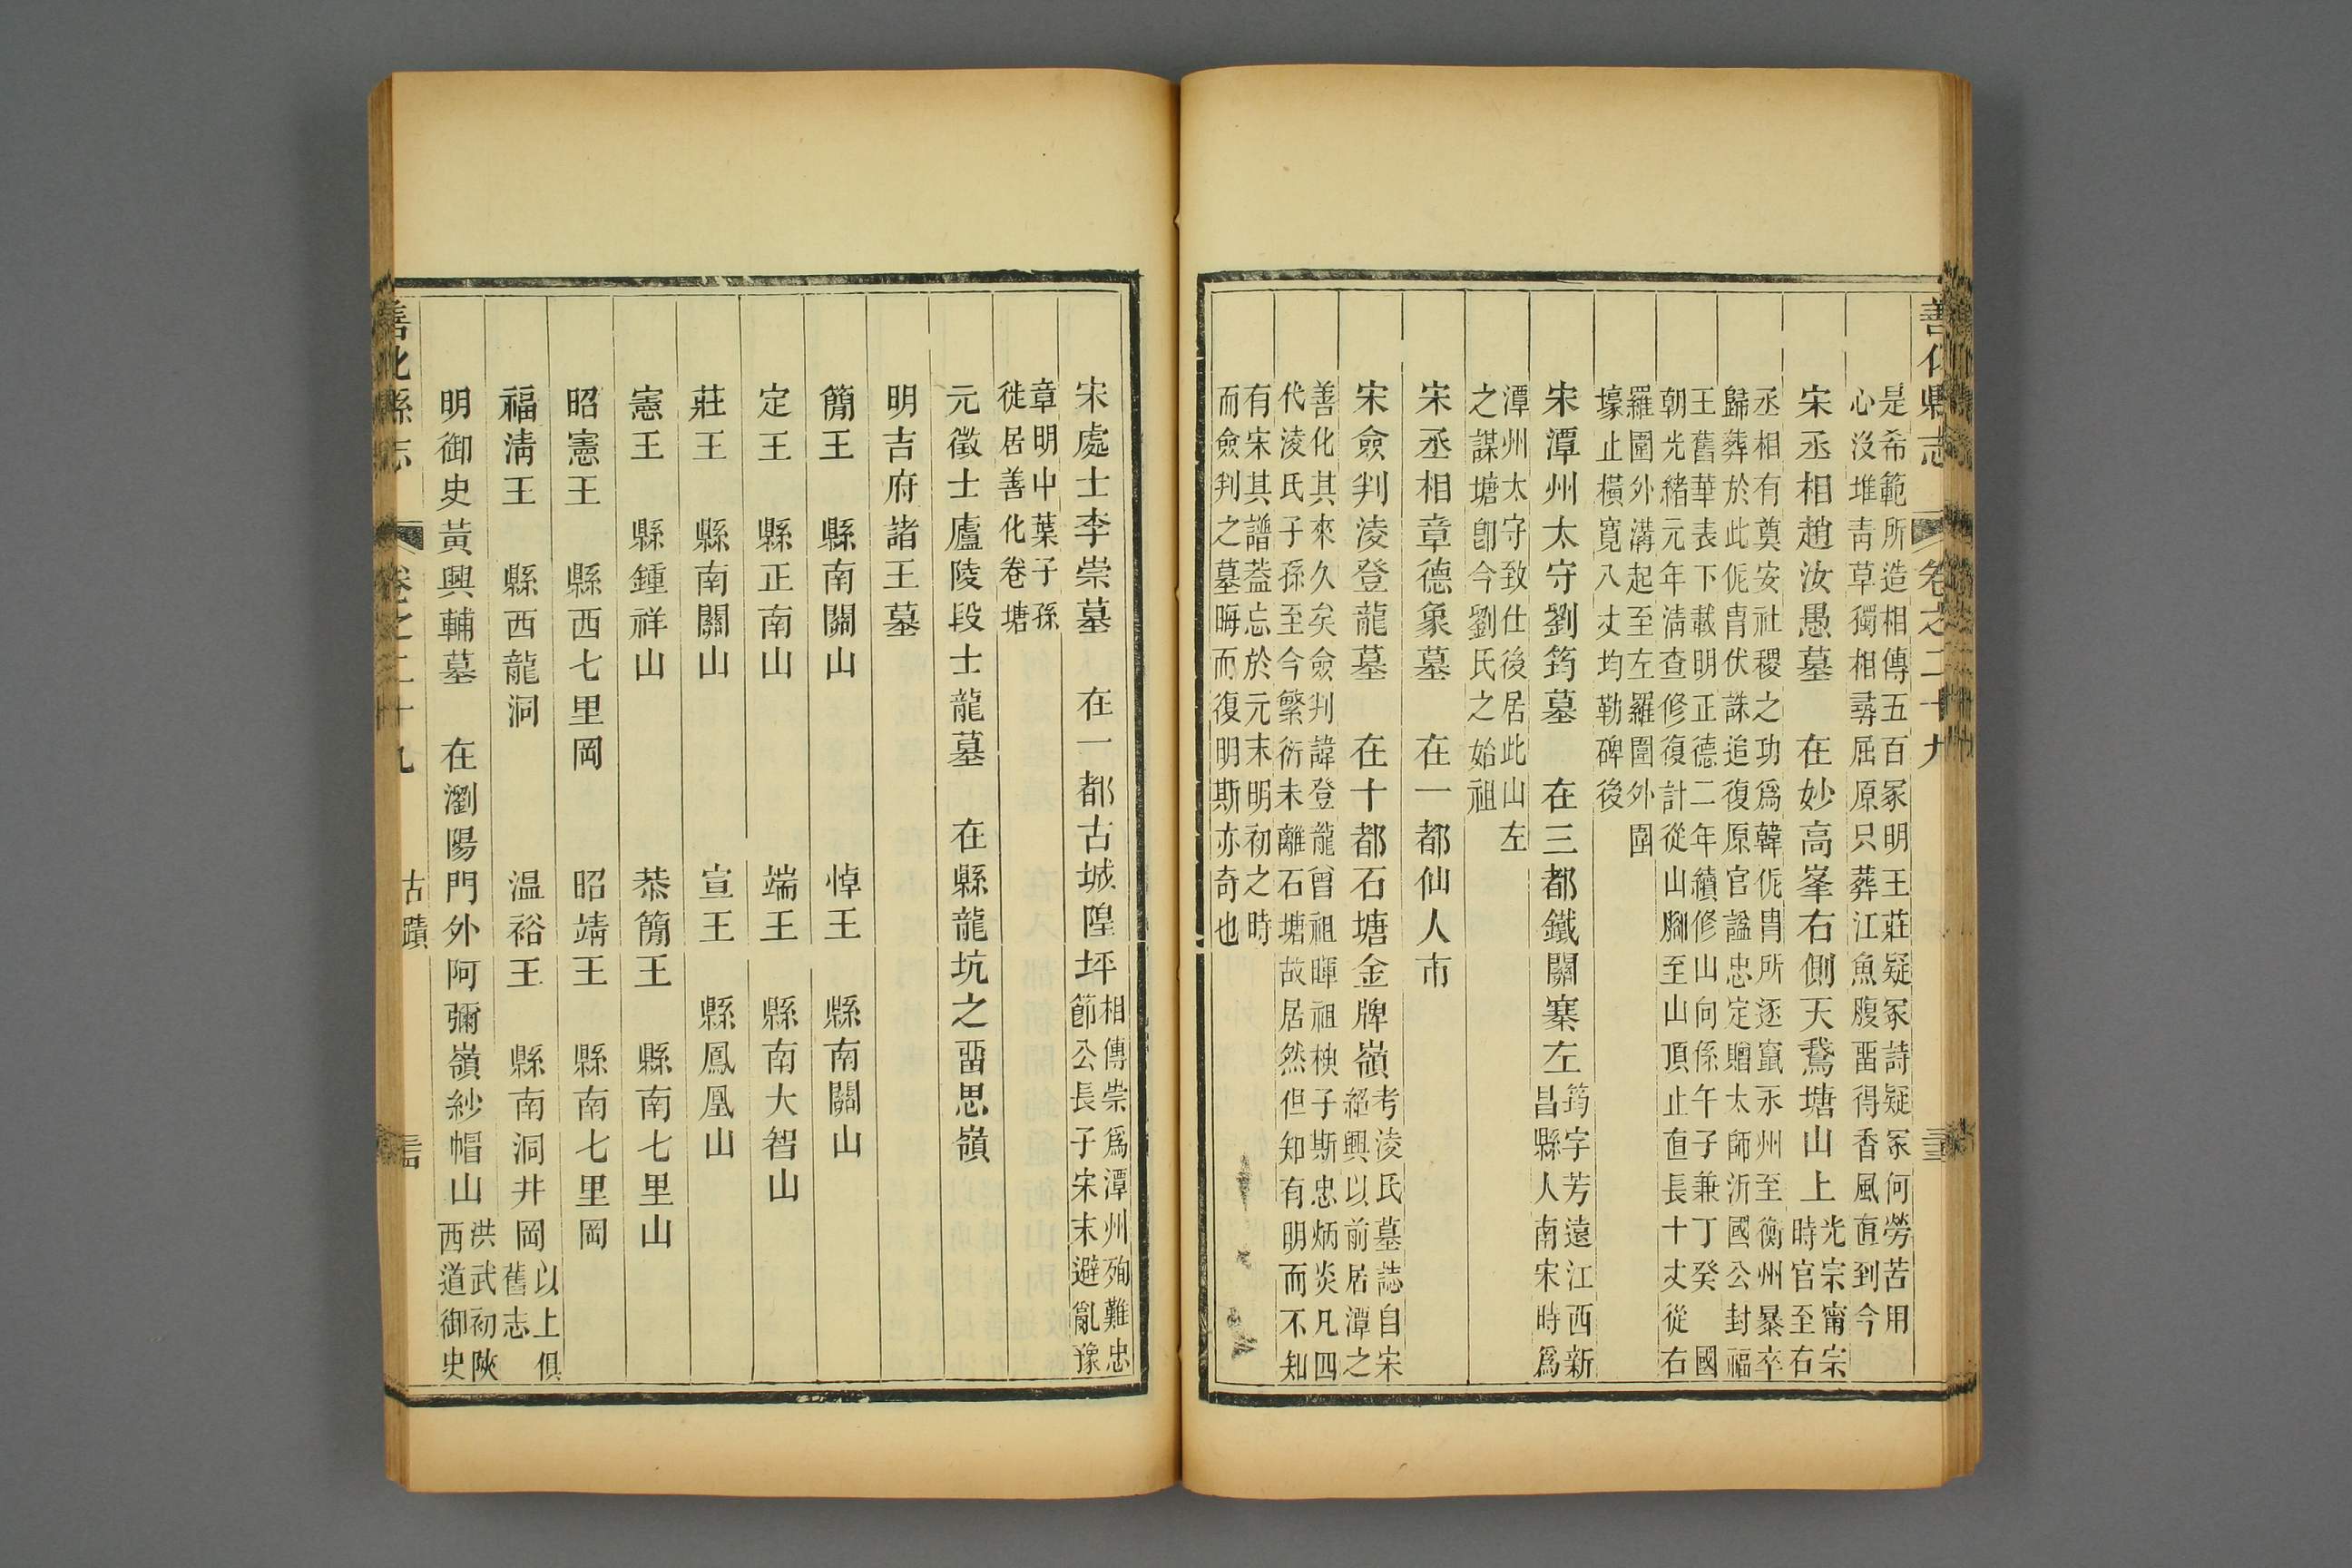 善化縣志 卷之二十九
是希範所造相傳五百冢明王莊疑冢詩疑冢何勞苦用
心沒堆靑草獨相尋屈原只葬江魚腹畱得香風直到今
宋丞相趙汝愚墓 在妙高峯右側天鵞塘山上 光宗甯宗
時官至右
丞相有奠安社稷之功爲韓侂胄所逐竄永州至衡州暴卒
歸葬於此侂胄伏誅追復原官諡忠定贈太師沂國公封福
王舊華表下載明正德二年續修山向係午子兼丁癸 國
朝光緒元年淸查修復計從山脚至山頂止直長十丈從右
羅圍外溝起至左羅圍外圍
壕止橫寬八丈均勒碑後
宋潭州太守劉筠墓 在三都鐵關寨左 筠字芳遠江西新
昌縣人南宋時爲
潭州太守致仕後居此山左
之謀塘卽今劉氏之始祖
宋丞相章德象墓 在一都仙人市
宋僉判淩登龍墓 在十都石塘金牌嶺 考淩氏墓誌自宋
紹興以前居潭之
善化其來久矣僉判諱登龍曾祖暉祖柍子斯忠炳炎凡四
代淩氏子孫至今繁衍未離石塘故居然但知有明而不知
有宋其譜葢忘於元末明初之時
而僉判之墓晦而復明斯亦奇也
宋處士李崇墓 在一都古城隍坪 相傳崇爲潭州殉難忠
節公長子宋末避亂豫
章明中葉子孫
徙居善化卷塘
元徵士廬陵段士龍墓 在縣龍坑之畱思嶺
明吉府諸王墓
簡王 縣南關山 悼王 縣南關山
定王 縣正南山 端王 縣南大智山
莊王 縣南關山 宣王 縣鳳凰山
憲王 縣鍾祥山 恭簡王 縣南七里山
昭憲王 縣西七里岡 昭靖王 縣南七里岡
福淸王 縣西龍洞 温裕王 縣南洞井岡 以上俱
舊志
明御史黃興輔墓 在瀏陽門外阿彌嶺紗帽山 洪武初陝
西道御史
善化縣志 卷之二十九 古蹟